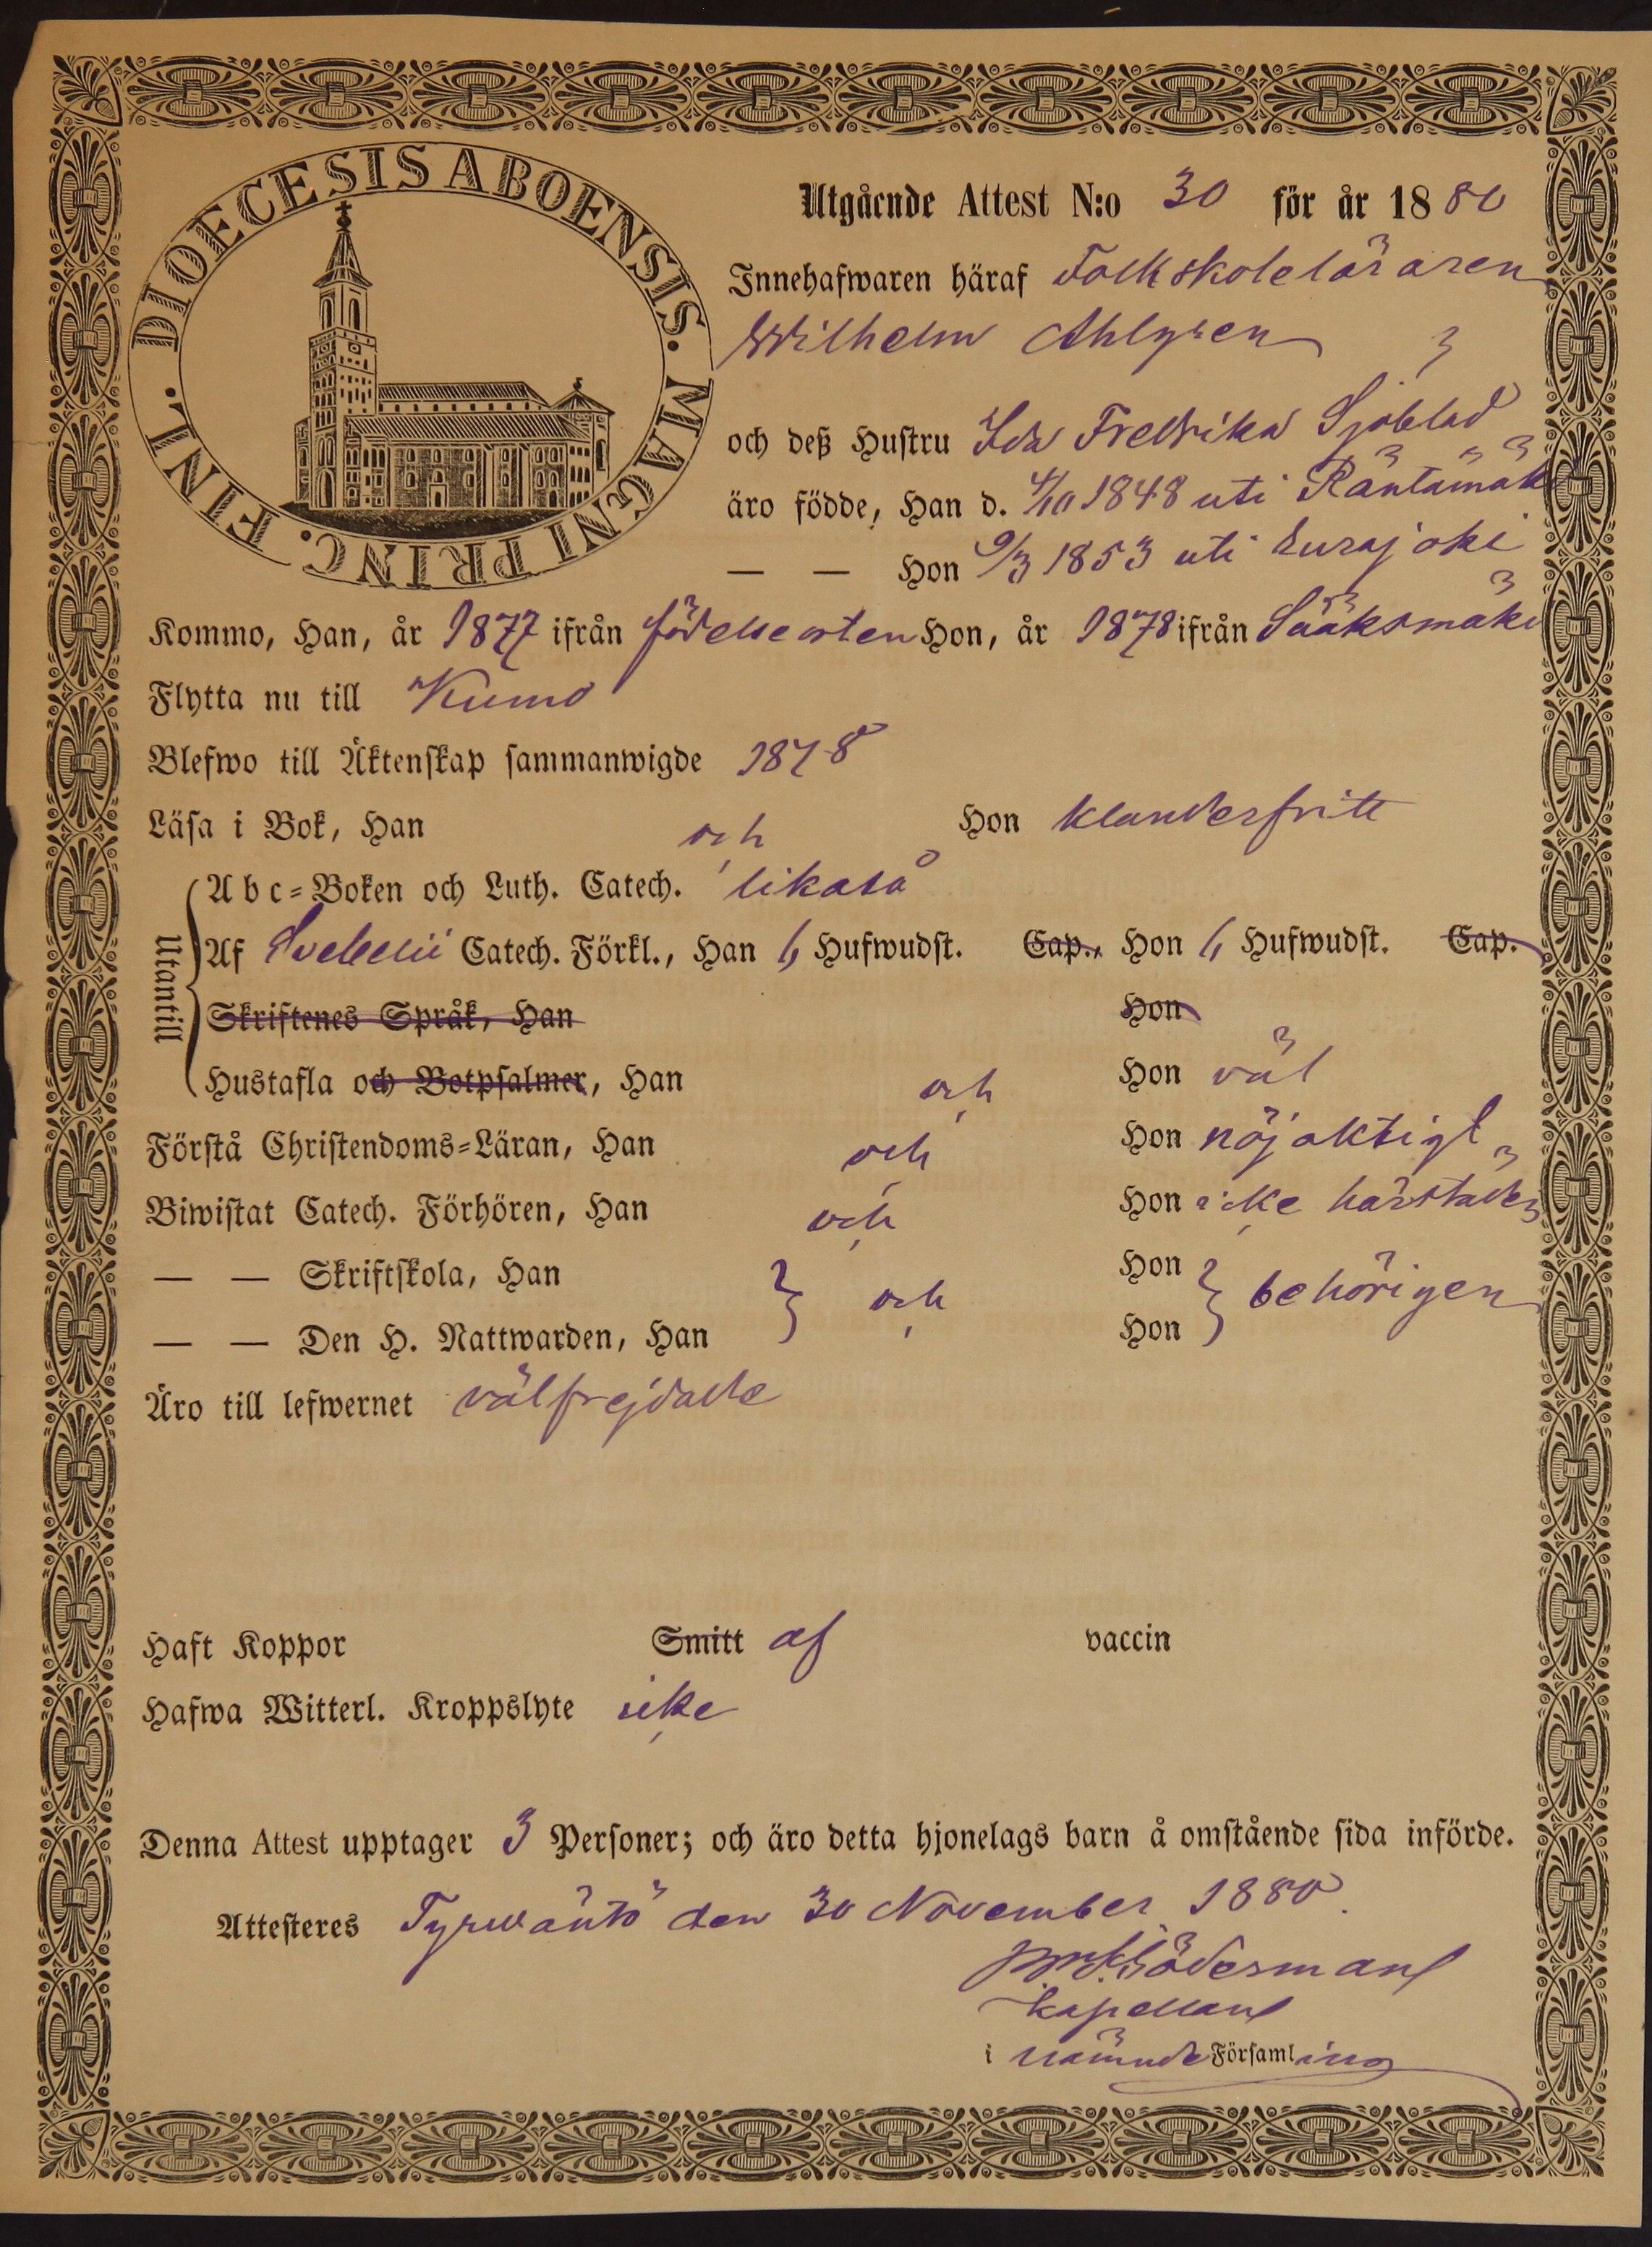 DIOECESIS ABOENSIS. MAGNI PRINC. FINL.
Utgående Attest N:o 30 för år 1880
Innehafwaren häraf Folkskoleläraren
Wilhelm Ahlgren
och deß Hustru Ida Fredrika Sjöblad
äro födde, Han d. 4/10 1848 uti Räntämäki
— — Hon 9/3 1853 uti Eurajoki
Kommo, Han, år 1877 ifrån födelseorten Hon, år 1878 ifrån Sääksmäki
Flytta nu till Kumo
Blefwo till Äktenskap sammanwigde 1878
Läsa i Bok, Han och Hon klanderfritt
Utantill
Abc=Boken och Luth. Catech. likaså
Af Svebelii Catech. Förkl., Han 6 Hufwudst. Cap., Hon 6 Hufwudst. Cap.
Skriftenes Språk, Han Hon
Hustafla och Botpsalmer, Han och Hon väl
Förstå Christendoms=Läran, Han och Hon nöjaktigt
Biwistat Catech. Förhören, Han och Hon icke härstädes
— — Skriftskola, Han Hon
och behörigen
— — Den H. Nattwarden, Han Hon
Äro till lefwernet välfrejdade
Haft Koppor Smitt af vaccin
Hafwa Witterl. Kroppslyte icke
Denna Attest upptager 3 Personer; och äro detta hjonelags barn å omstående sida införde.
Attesteres Tyrwäntö den 30 November 1880.
Södermanl
kapellan
i nämnde Församling